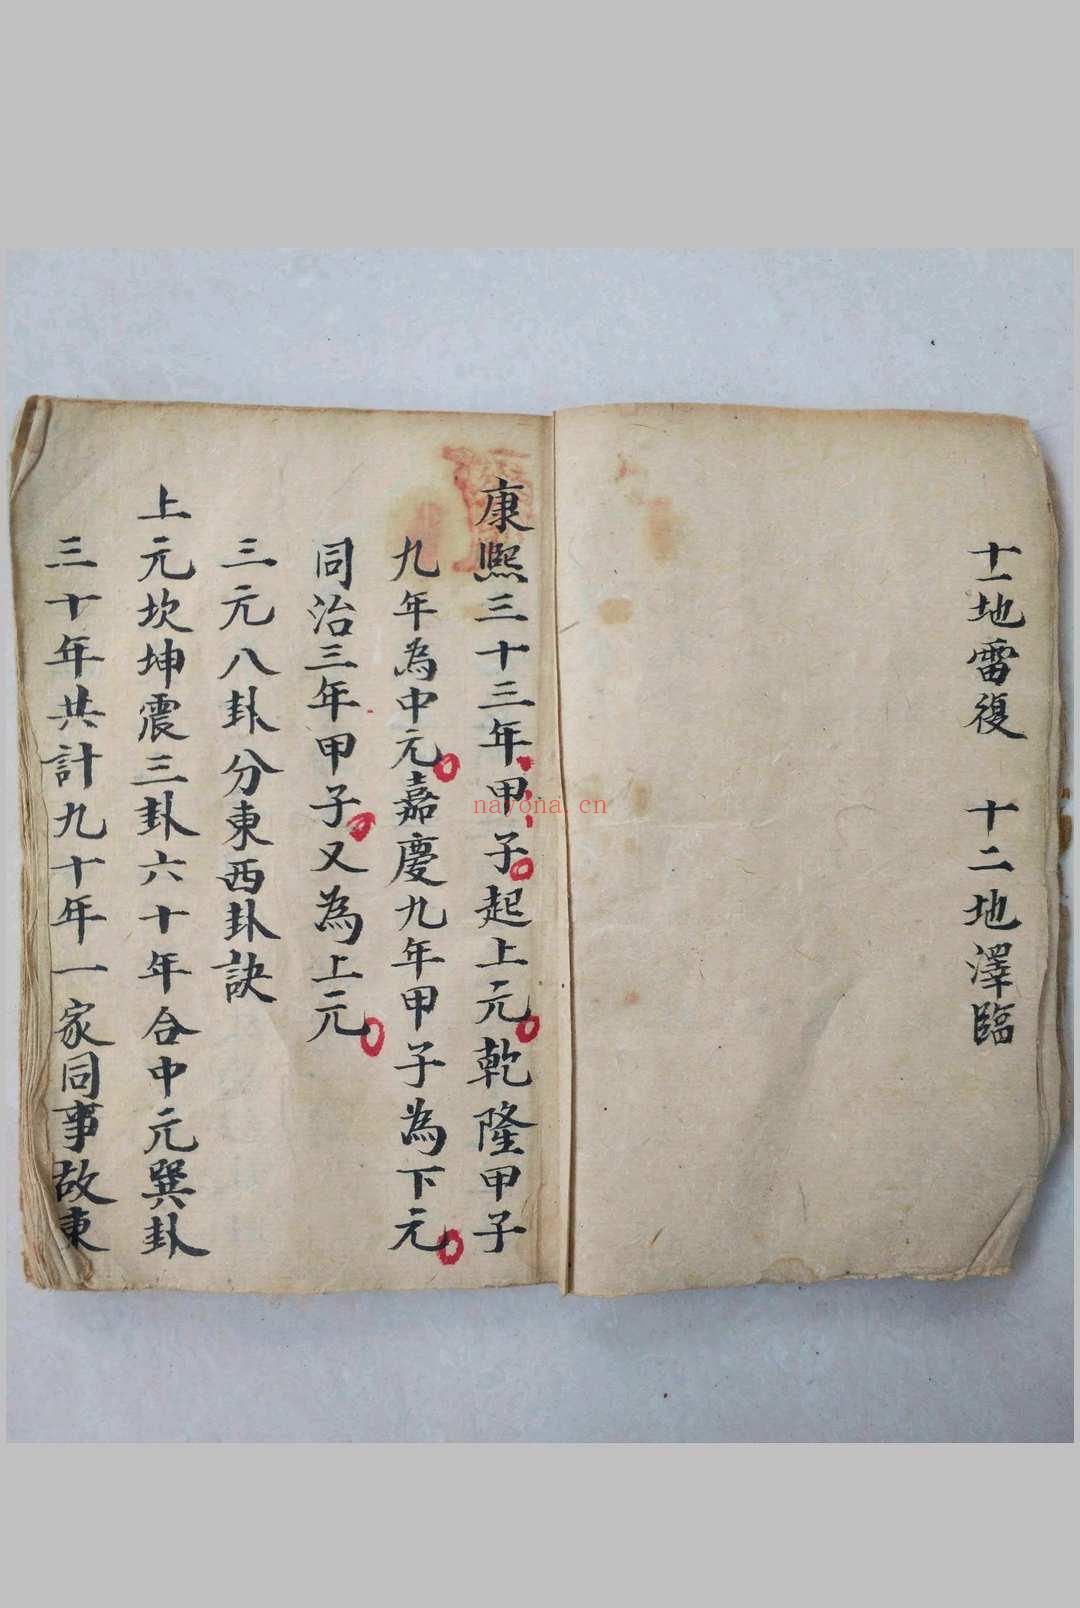 十一地雷復　十二地澤臨
康熙三十三年甲子起上元乾隆甲子
九年為中元嘉慶九年甲子為下元
同治三年甲子又為上元
三元八卦分東西卦訣
上元坎坤震三卦六十年合中元巽卦
三十年共計九十年一家同事故東
nayona.cn